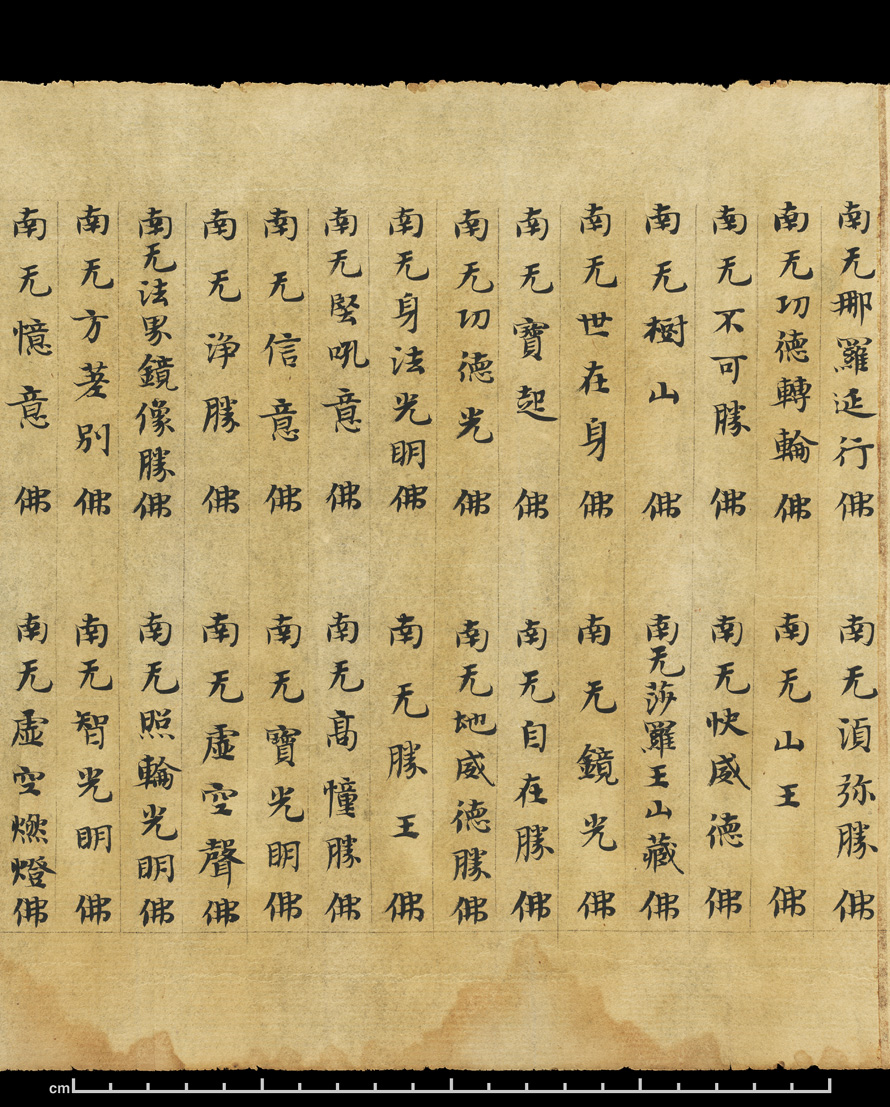 南无那羅延行佛 南无須弥勝佛
南无功德轉輪佛 南无山王佛
南无不可勝佛 南无快威德佛
南无樹山佛 南无莎羅王山藏佛
南无世在身佛 南无鏡光佛
南无寶起佛 南无自在勝佛
南无功德光佛 南无地威德勝佛
南无身法光明佛 南无勝王佛
南无堅吼意佛 南无高憧勝佛
南无信意佛 南无寶光明佛
南无淨勝佛 南无虛空聲佛
南无法界鏡像勝佛 南无照輪光明佛
南无方差別佛 南无智光明佛
南无憶意佛 南无虛空燃燈佛
cm